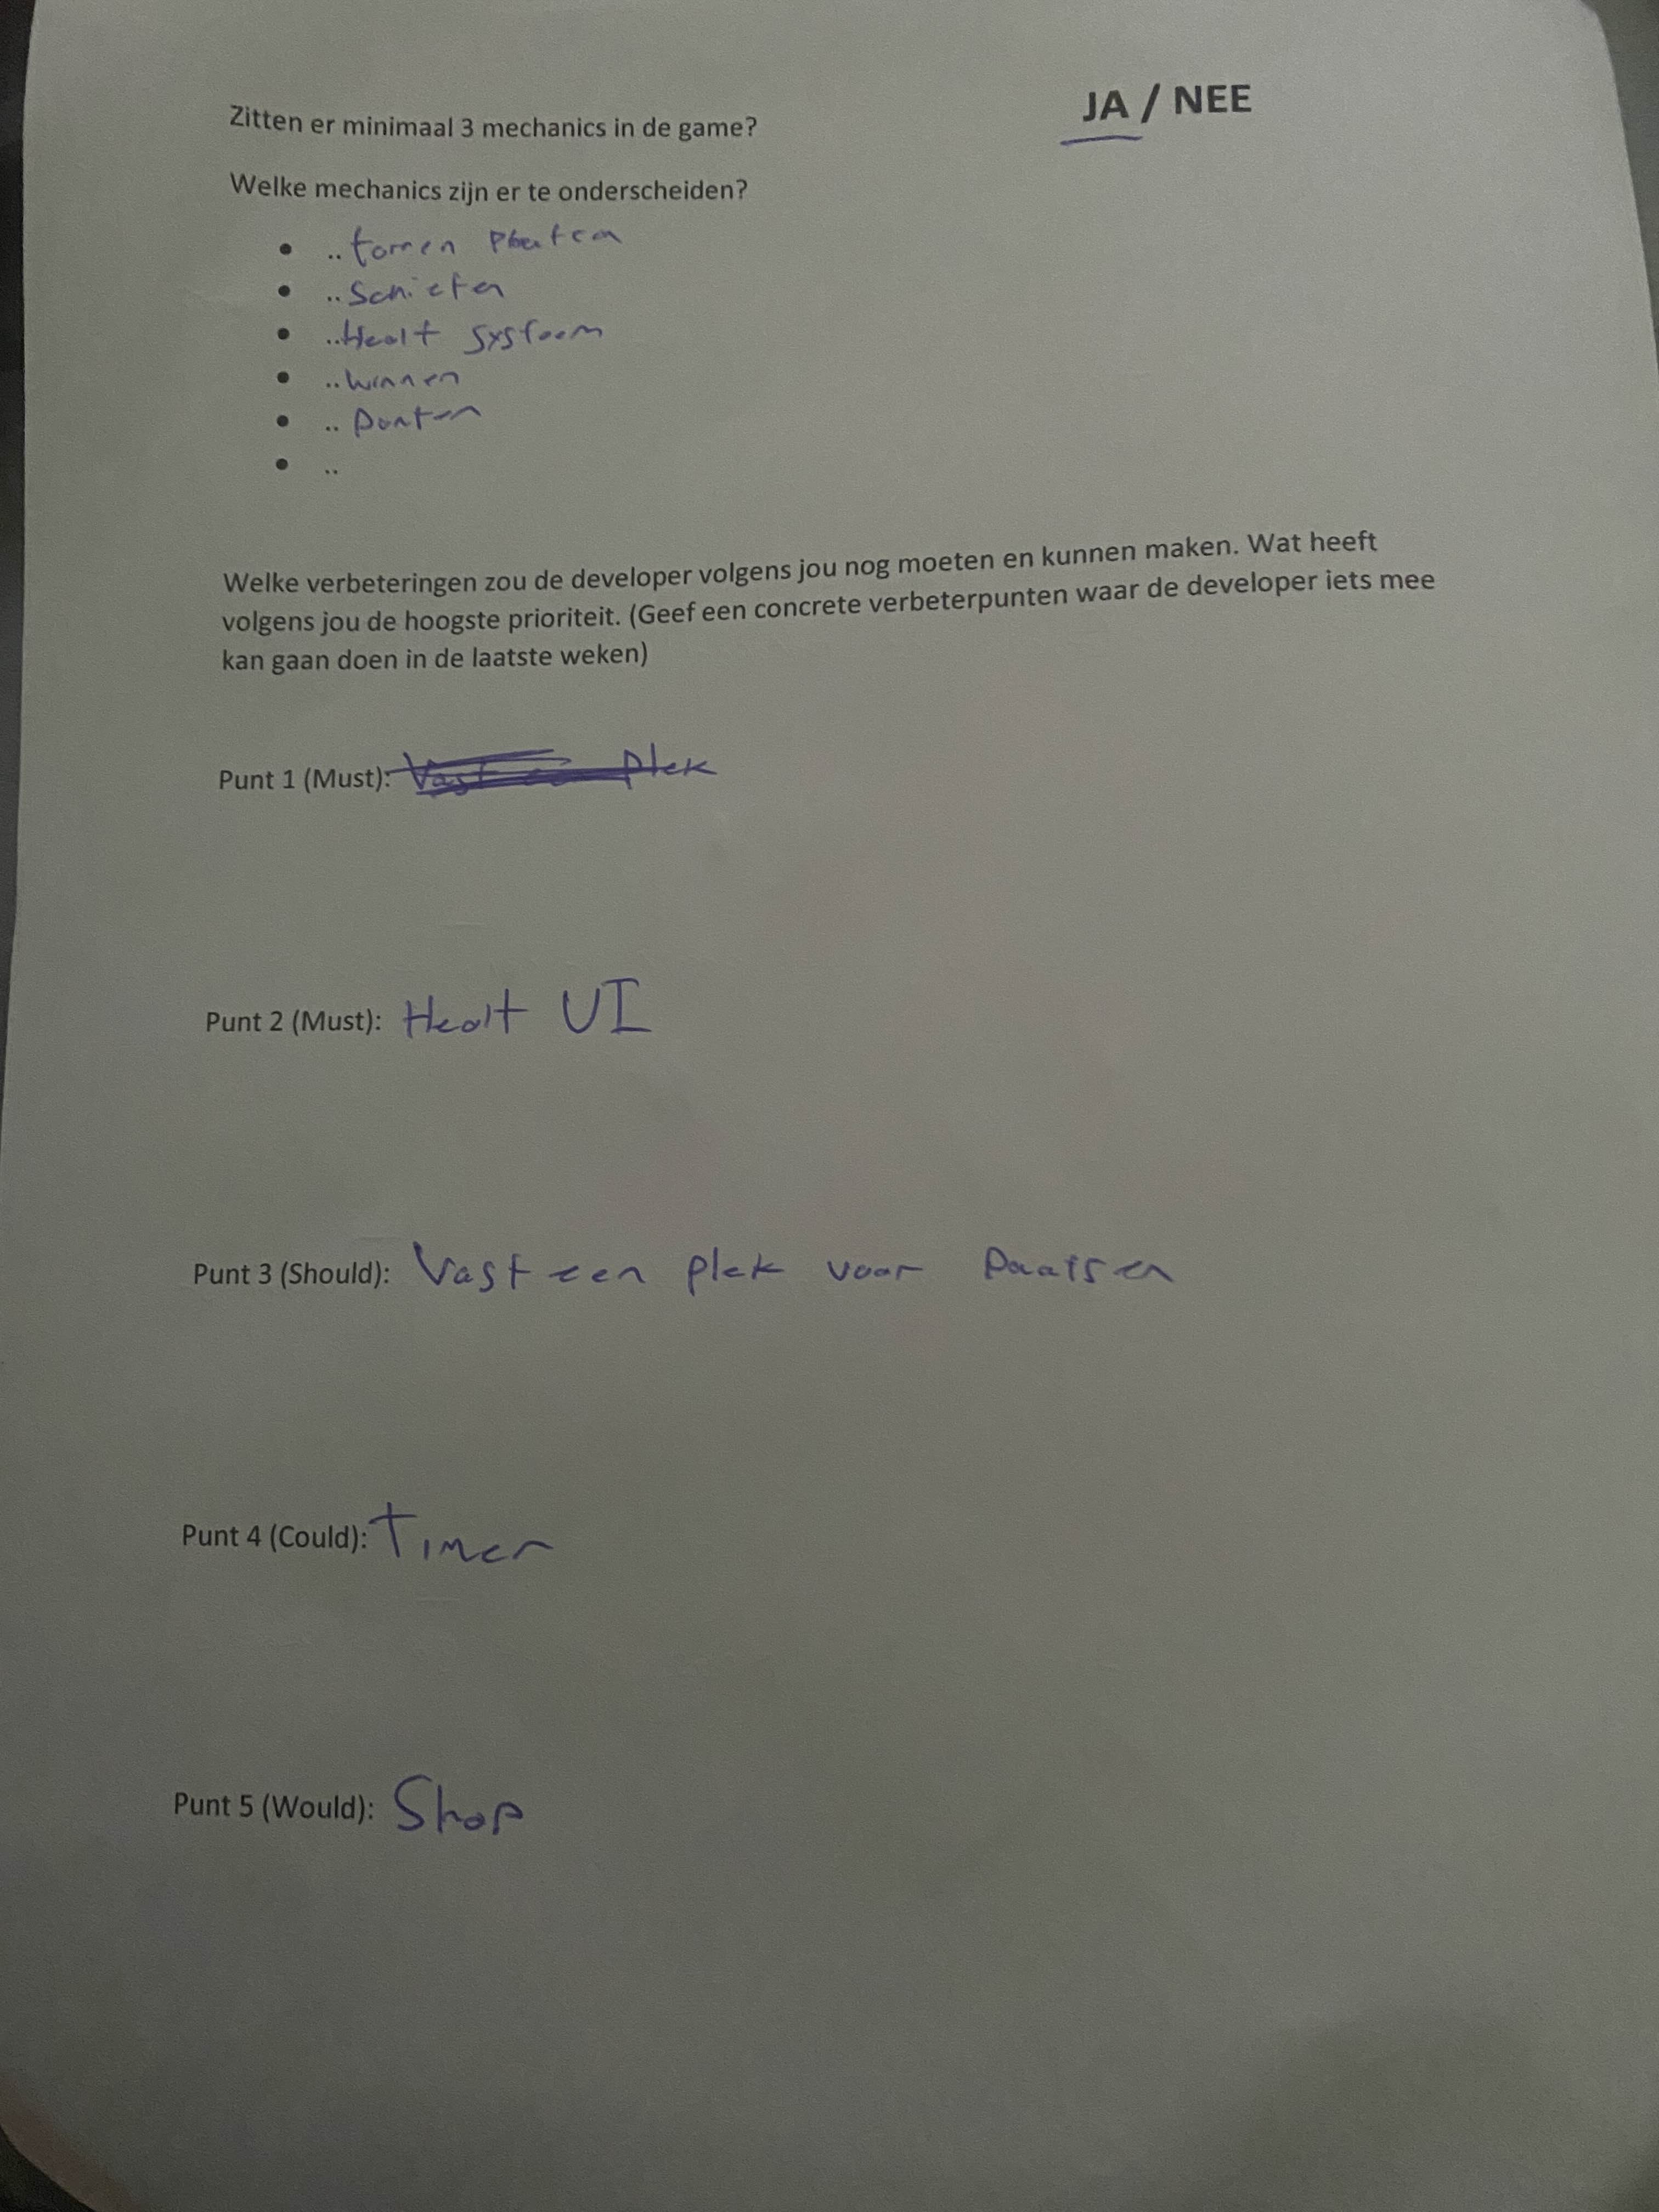 Zitten er minimaal 3 mechanics in de game?
JA / NEE
Welke mechanics zijn er te onderscheiden?
• ..torren
• ..Schieten
• ..Healt systeem
• ..winnen
• ..Punten
• ..
Welke verbeteringen zou de developer volgens jou nog moeten en kunnen maken. Wat heeft
volgens jou de hoogste prioriteit. (Geef een concrete verbeterpunten waar de developer iets mee
kan gaan doen in de laatste weken)
Punt 1 (Must): Vast een plek
Punt 2 (Must): Healt UI
Punt 3 (Should): Vast een plek voor Paatsen
Punt 4 (Could): Timer
Punt 5 (Would): Shop